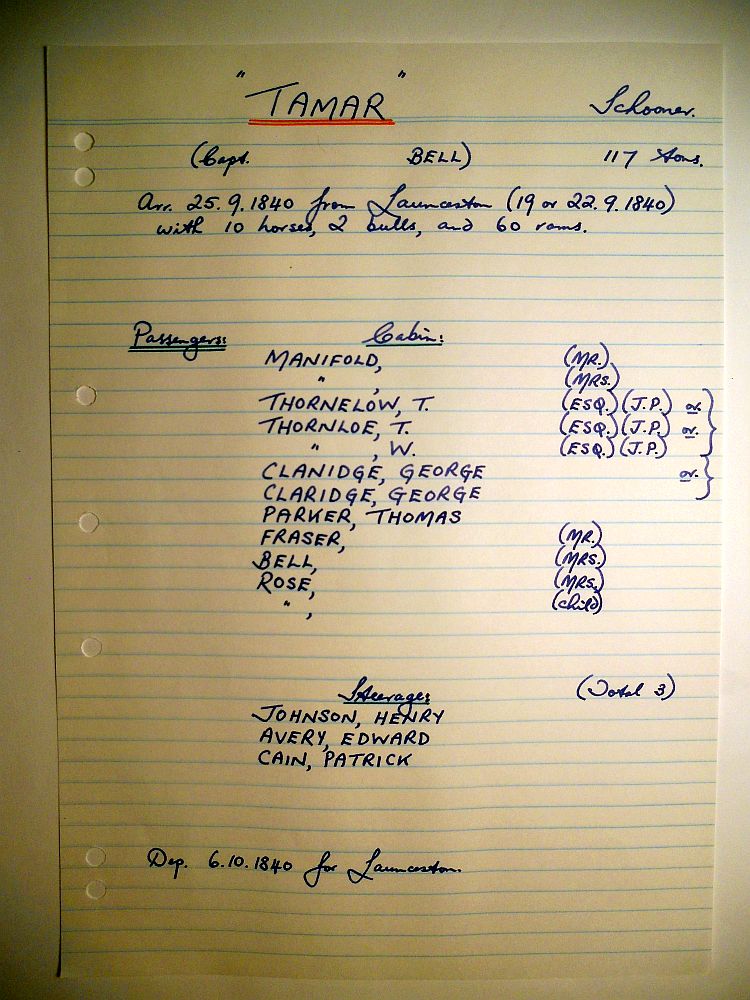 "TAMAR" Schooner.
(Capt. BELL) 117 tons.
Arr. 25.9.1840 from Launceston (19 or 22.9.1840)
with 10 horses, 2 bulls, and 60 rams.
Passengers: Cabin:
MANIFOLD, (MR.)
" , (MRS.)
THORNELOW, T. (ESQ.) (J.P.) or.
THORNLOE, T. (ESQ.) (J.P.) or.
" , W. (ESQ.) (J.P.)
CLANIDGE, GEORGE or.
CLARIDGE, GEORGE
PARKER, THOMAS
FRASER, (MR.)
BELL, (MRS.)
ROSE, (MRS.)
" , (child)
Steerage: (Total 3)
JOHNSON, HENRY
AVERY, EDWARD
CAIN, PATRICK
Dep. 6.10.1840 for Launceston.